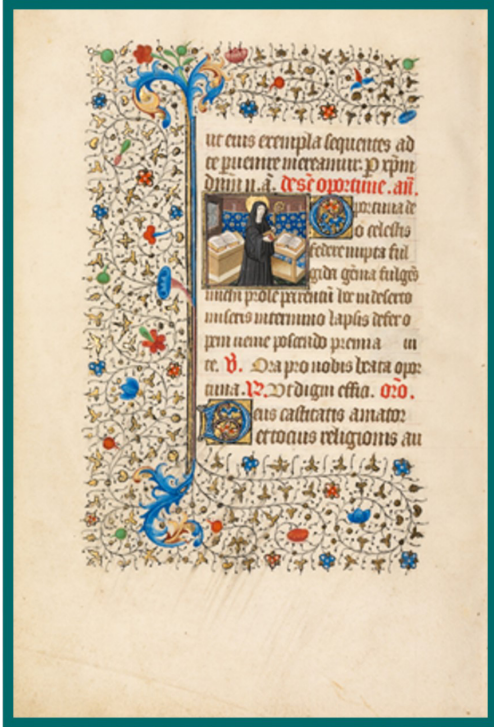 ut eius exempla sequentes ad
te puenire mereamur. P xpm
dnm n. a. de scē oportune. añ.
Oportuna de
o celestis
federe nupta ful
gida gēma fulgēs
misens intermino lapsis defero
pem ueme poscendo premia in
te. V. Ora pro nobis beata opor
tuna. R. Ut digni effici. oro.
Deus castitatis amator
et tocius religionis au